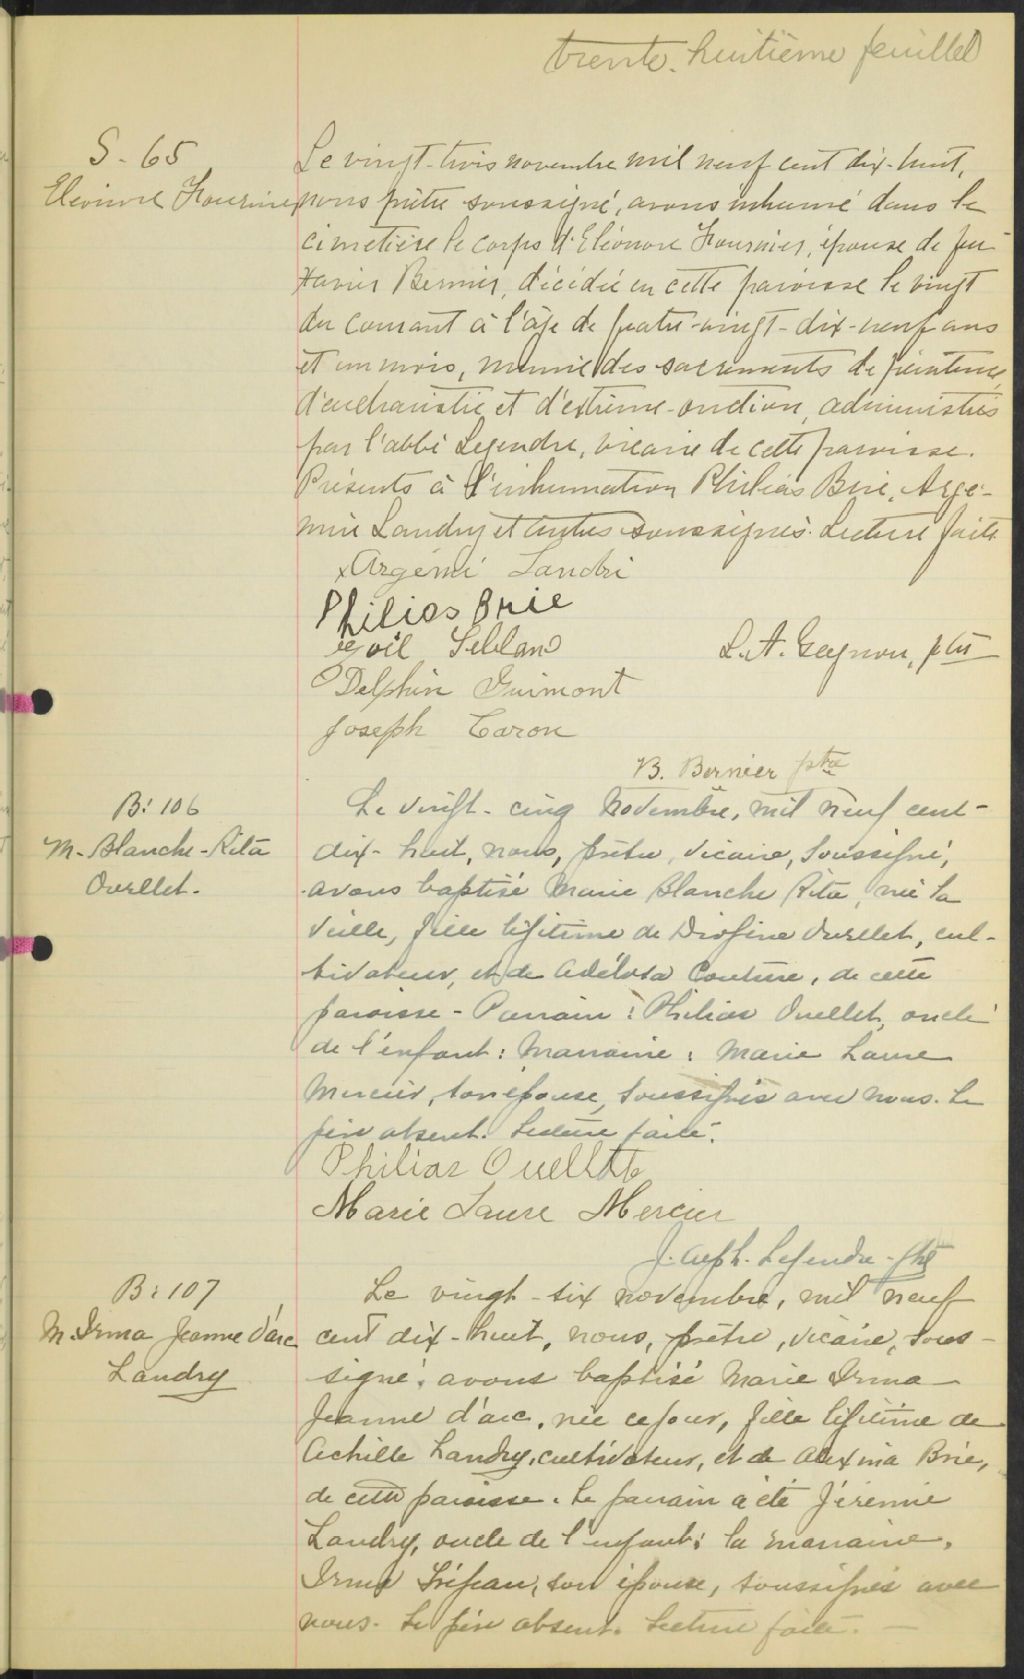 trente-huitième feuillet
S - 65
Eléonore Fournier
Le vingt-trois novembre mil neuf cent dix-huit,
nous prêtre soussigné, avons inhumé dans le
cimetière le corps d'Eléonore Fournier, épouse de feu
Xavier Bernier, décédée en cette paroisse le vingt
du courant à l'âge de quatre-vingt-dix-neuf ans
et un mois, munie des sacrements de pénitence,
d'eucharistie et d'extrême-onction, administrés
par l'abbé Legendre, vicaire de cette paroisse.
Présents à l'inhumation Philias Brie, Argé-
mie Landry et autres soussignés. Lecture faite
Argémi Landri
Philias Brie
Leblanc
L. A. Gagnon, ptre
Delphin Guimont
Joseph Caron
B. Bernier ptre
B: 106
M-Blanche-Rita
Ouellet.
Le vingt-cinq Novembre, mil neuf cent-
dix-huit, nous, prêtre, vicaire, soussigné,
avons baptisé Marie Blanche Rita, née la
veille, fille légitime de Diogène Ouellet, cul-
tivateur, et de Couture, de cette
paroisse - Parrain: Philias Ouellet, oncle
de l'enfant: Marraine: Marie Laure
Mercier, son épouse, soussignés avec nous. Le
père absent. Lecture faite.
Philias Ouellette
Marie Laure Mercier
J. Legendre. ptre
B: 107
M. Irma Jeanne d'arc
Landry
Le vingt-six novembre, mil neuf
cent dix-huit, nous, prêtre, vicaire, sous-
signé, avons baptisé Marie Irma
Jeanne d'arc, née ce jour, fille légitime de
Achille Landry, cultivateur, et de Alexina Brie,
de cette paroisse. Le parrain a été Jérémie
Landry, oncle de l'enfant; la marraine,
Irma Trépan, son épouse, soussignés avec
nous. Le père absent. Lecture faite. -